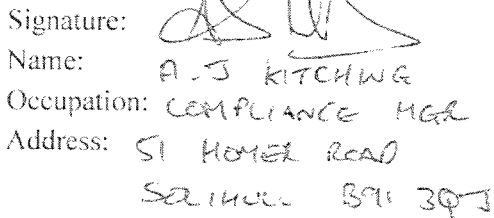 Signature:
Name: A.J KITCHING
Occupation: COMPLIANCE MGR
Address: 51 HOMER ROAD
SOLIHULL B91 3QJ